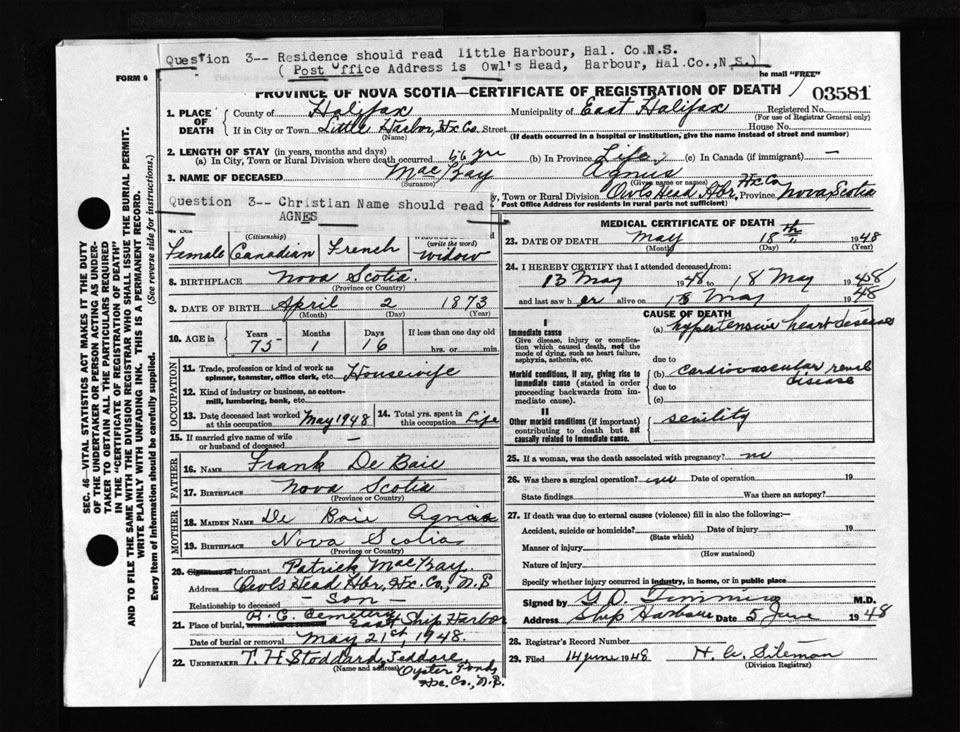 Question 3-- Residence should read little Harbour, Hal. Co.N.S.
( Post Office Address is Owl's Head, Harbour, Hal.Co.,N.S.)
FORM 6
he mail "FREE"
PROVINCE OF NOVA SCOTIA—CERTIFICATE OF REGISTRATION OF DEATH
03581
1. PLACE OF DEATH
County of Halifax Municipality of East Halifax Registered No.
(For use of Registrar General only)
If in City or Town Little Harbor, Hx Co. Street House No.
(Name) (If death occurred in a hospital or institution, give the name instead of street and number)
2. LENGTH OF STAY (in years, months and days)
(a) In City, Town or Rural Division where death occurred 56 yrs (b) In Province Life (c) In Canada (if immigrant) —
3. NAME OF DECEASED MacKay Agnus
(Surname) (Given name or names)
Owls Head Hbr, Hx Co Province Nova Scotia
Post Office Address for residents in rural parts not sufficient)
Question 3-- Christian Name should read
AGNES
(Citizenship)
(write the word)
Female Canadian French widow
8. BIRTHPLACE Nova Scotia
(Province or Country)
9. DATE OF BIRTH April 2 1873
(Month) (Day) (Year)
10. AGE in Years Months Days If less than one day old
75 1 16 hrs. or min.
OCCUPATION
11. Trade, profession or kind of work as spinner, teamster, office clerk, etc. Housewife
12. Kind of industry or business, as cotton-mill, lumbering, bank, etc.
13. Date deceased last worked at this occupation May 1948 14. Total yrs. spent in this occupation Life
15. If married give name of wife or husband of deceased —
FATHER
16. NAME Frank De Baie
17. BIRTHPLACE Nova Scotia
(Province or Country)
MOTHER
18. MAIDEN NAME De Baie Agnes
19. BIRTHPLACE Nova Scotia
(Province or Country)
20. Signature of Informant Patrick MacKay
Address Owls Head Hbr, Hx. Co., N.S
Relationship to deceased - Son -
21. Place of burial, R. C. Cemetery East Ship Harbor
Date of burial or removal May 21st 1948.
22. UNDERTAKER T. H Stoddard, Jeddore,
(Name and address) Oyster Ponds
Hx. Co., N.S.
MEDICAL CERTIFICATE OF DEATH
23. DATE OF DEATH May 18th 1948
(Month) (Day) (Year)
24. I HEREBY CERTIFY that I attended deceased from:
13 May 1948 to 18 May 1948
and last saw her alive on 18 May 1948
CAUSE OF DEATH
I
Immediate cause
Give disease, injury or complication which caused death, not the mode of dying, such as heart failure, asphyxia, asthenia, etc.
(a) hypertensive heart disease
due to
Morbid conditions, if any, giving rise to Immediate cause (stated in order proceeding backwards from immediate cause).
(b) cardiovascular renal disease
due to
(c)
II
Other morbid conditions (if important) contributing to death but not causally related to immediate cause.
senility
25. If a woman, was the death associated with pregnancy? no
26. Was there a surgical operation? no Date of operation 19
State findings Was there an autopsy?
27. If death was due to external causes (violence) fill in also the following:—
Accident, suicide or homicide? Date of injury 19
(State which)
Manner of injury
(How sustained)
Nature of injury
Specify whether injury occurred in industry, in home, or in public place
Signed by G D. Timmins M.D.
Address Ship Harbour Date 5 June 1948
28. Registrar's Record Number
29. Filed 14 June 1948 H. A. Siteman
(Division Registrar)
SEC. 46—VITAL STATISTICS ACT MAKES IT THE DUTY
OF THE UNDERTAKER OR PERSON ACTING AS UNDERTAKER TO OBTAIN ALL THE PARTICULARS REQUIRED
IN THE "CERTIFICATE OF REGISTRATION OF DEATH"
AND TO FILE THE SAME WITH THE DIVISION REGISTRAR WHO SHALL ISSUE THE BURIAL PERMIT.
WRITE PLAINLY WITH UNFADING INK. THIS IS A PERMANENT RECORD.
Every item of information should be carefully supplied. (See reverse side for instructions.)